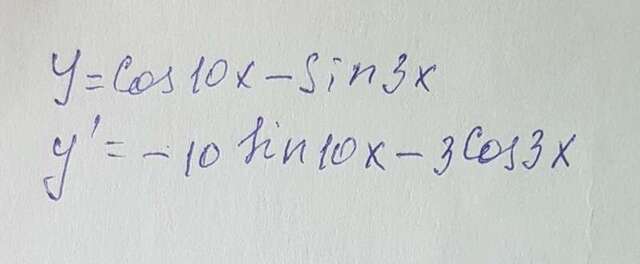 y = cos10x - sin3x
y' = -10 sin10x - 3cos3x